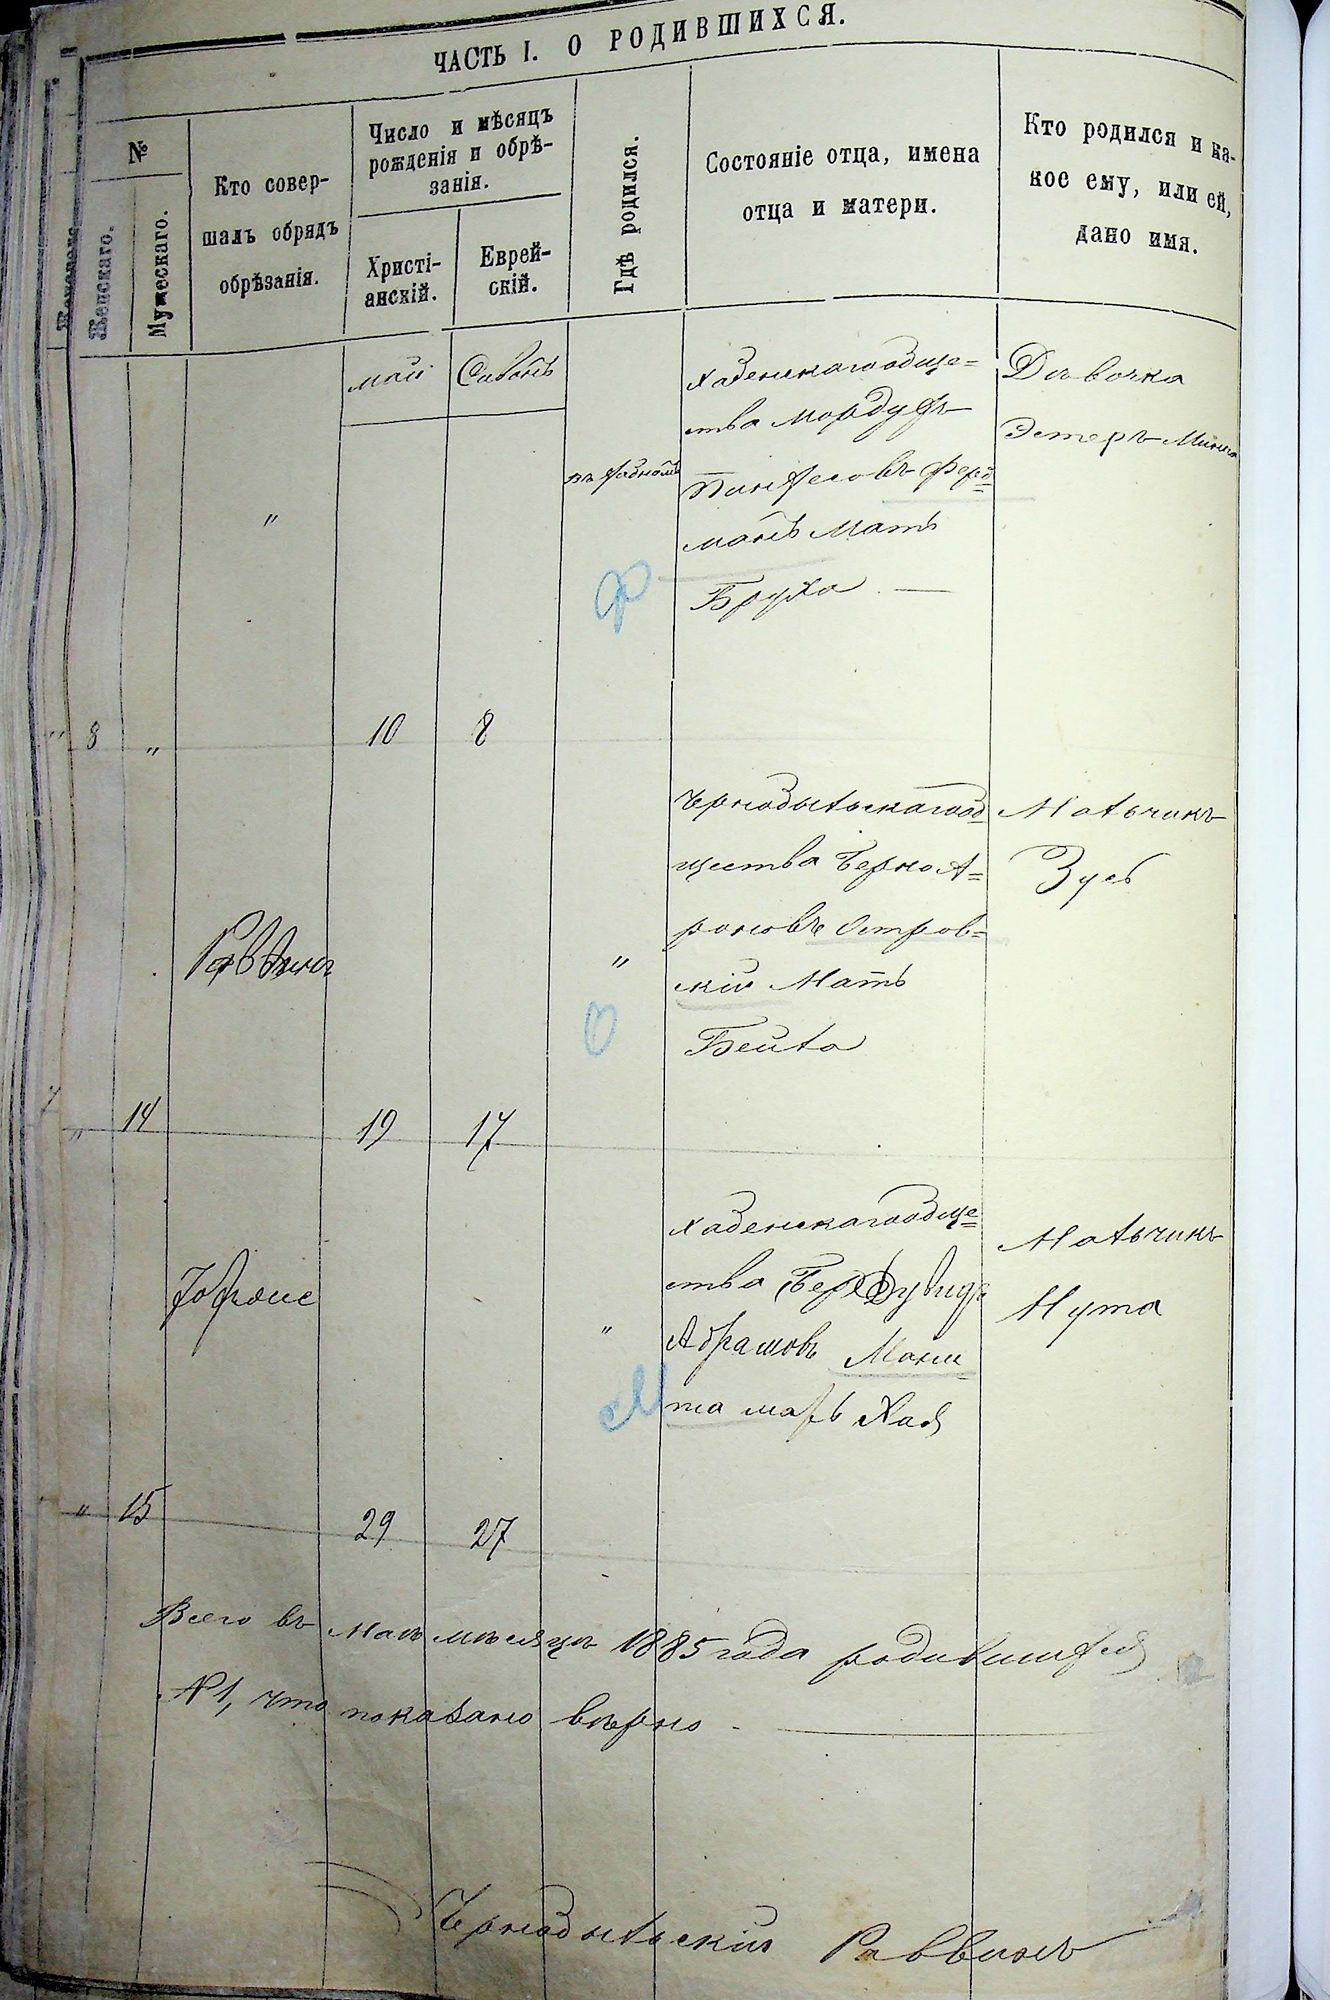 ЧАСТЬ I. О РОДИВШИХСЯ.
№
Женскаго.
Мужескаго.
Кто совер-
шалъ обрядъ
обрѣзанія.
Число и мѣсяцъ
рожденія и обрѣ-
занія.
Христі-
анскій.
Еврей-
скій.
Гдѣ родился.
Состояніе отца, имена
отца и матери.
Кто родился и ка-
кое ему, или ей,
дано имя.
май
Сивань
Хабенскаго обще=
ства Мордухъ
Пинхесовъ Ферд=
манъ Мать
Бруха
Дѣвочка
Эстеръ
"
Ф
8 " 10 8
Чернобыльскаго об=
щества Берко А=
роновъ Остров=
скій Мать
Бейла
Мальчикъ
Зусь
"
О
" 14 19 17
Хабенскаго обще=
ства Бер Дувидъ
Абрамовъ
Хая
Мальчикъ
Нута
"
М
" 15 29 27
Всего въ Маѣ мѣсяцѣ 1885 года родившихся
что показано вѣрно
Чернобыльскій Раввинъ